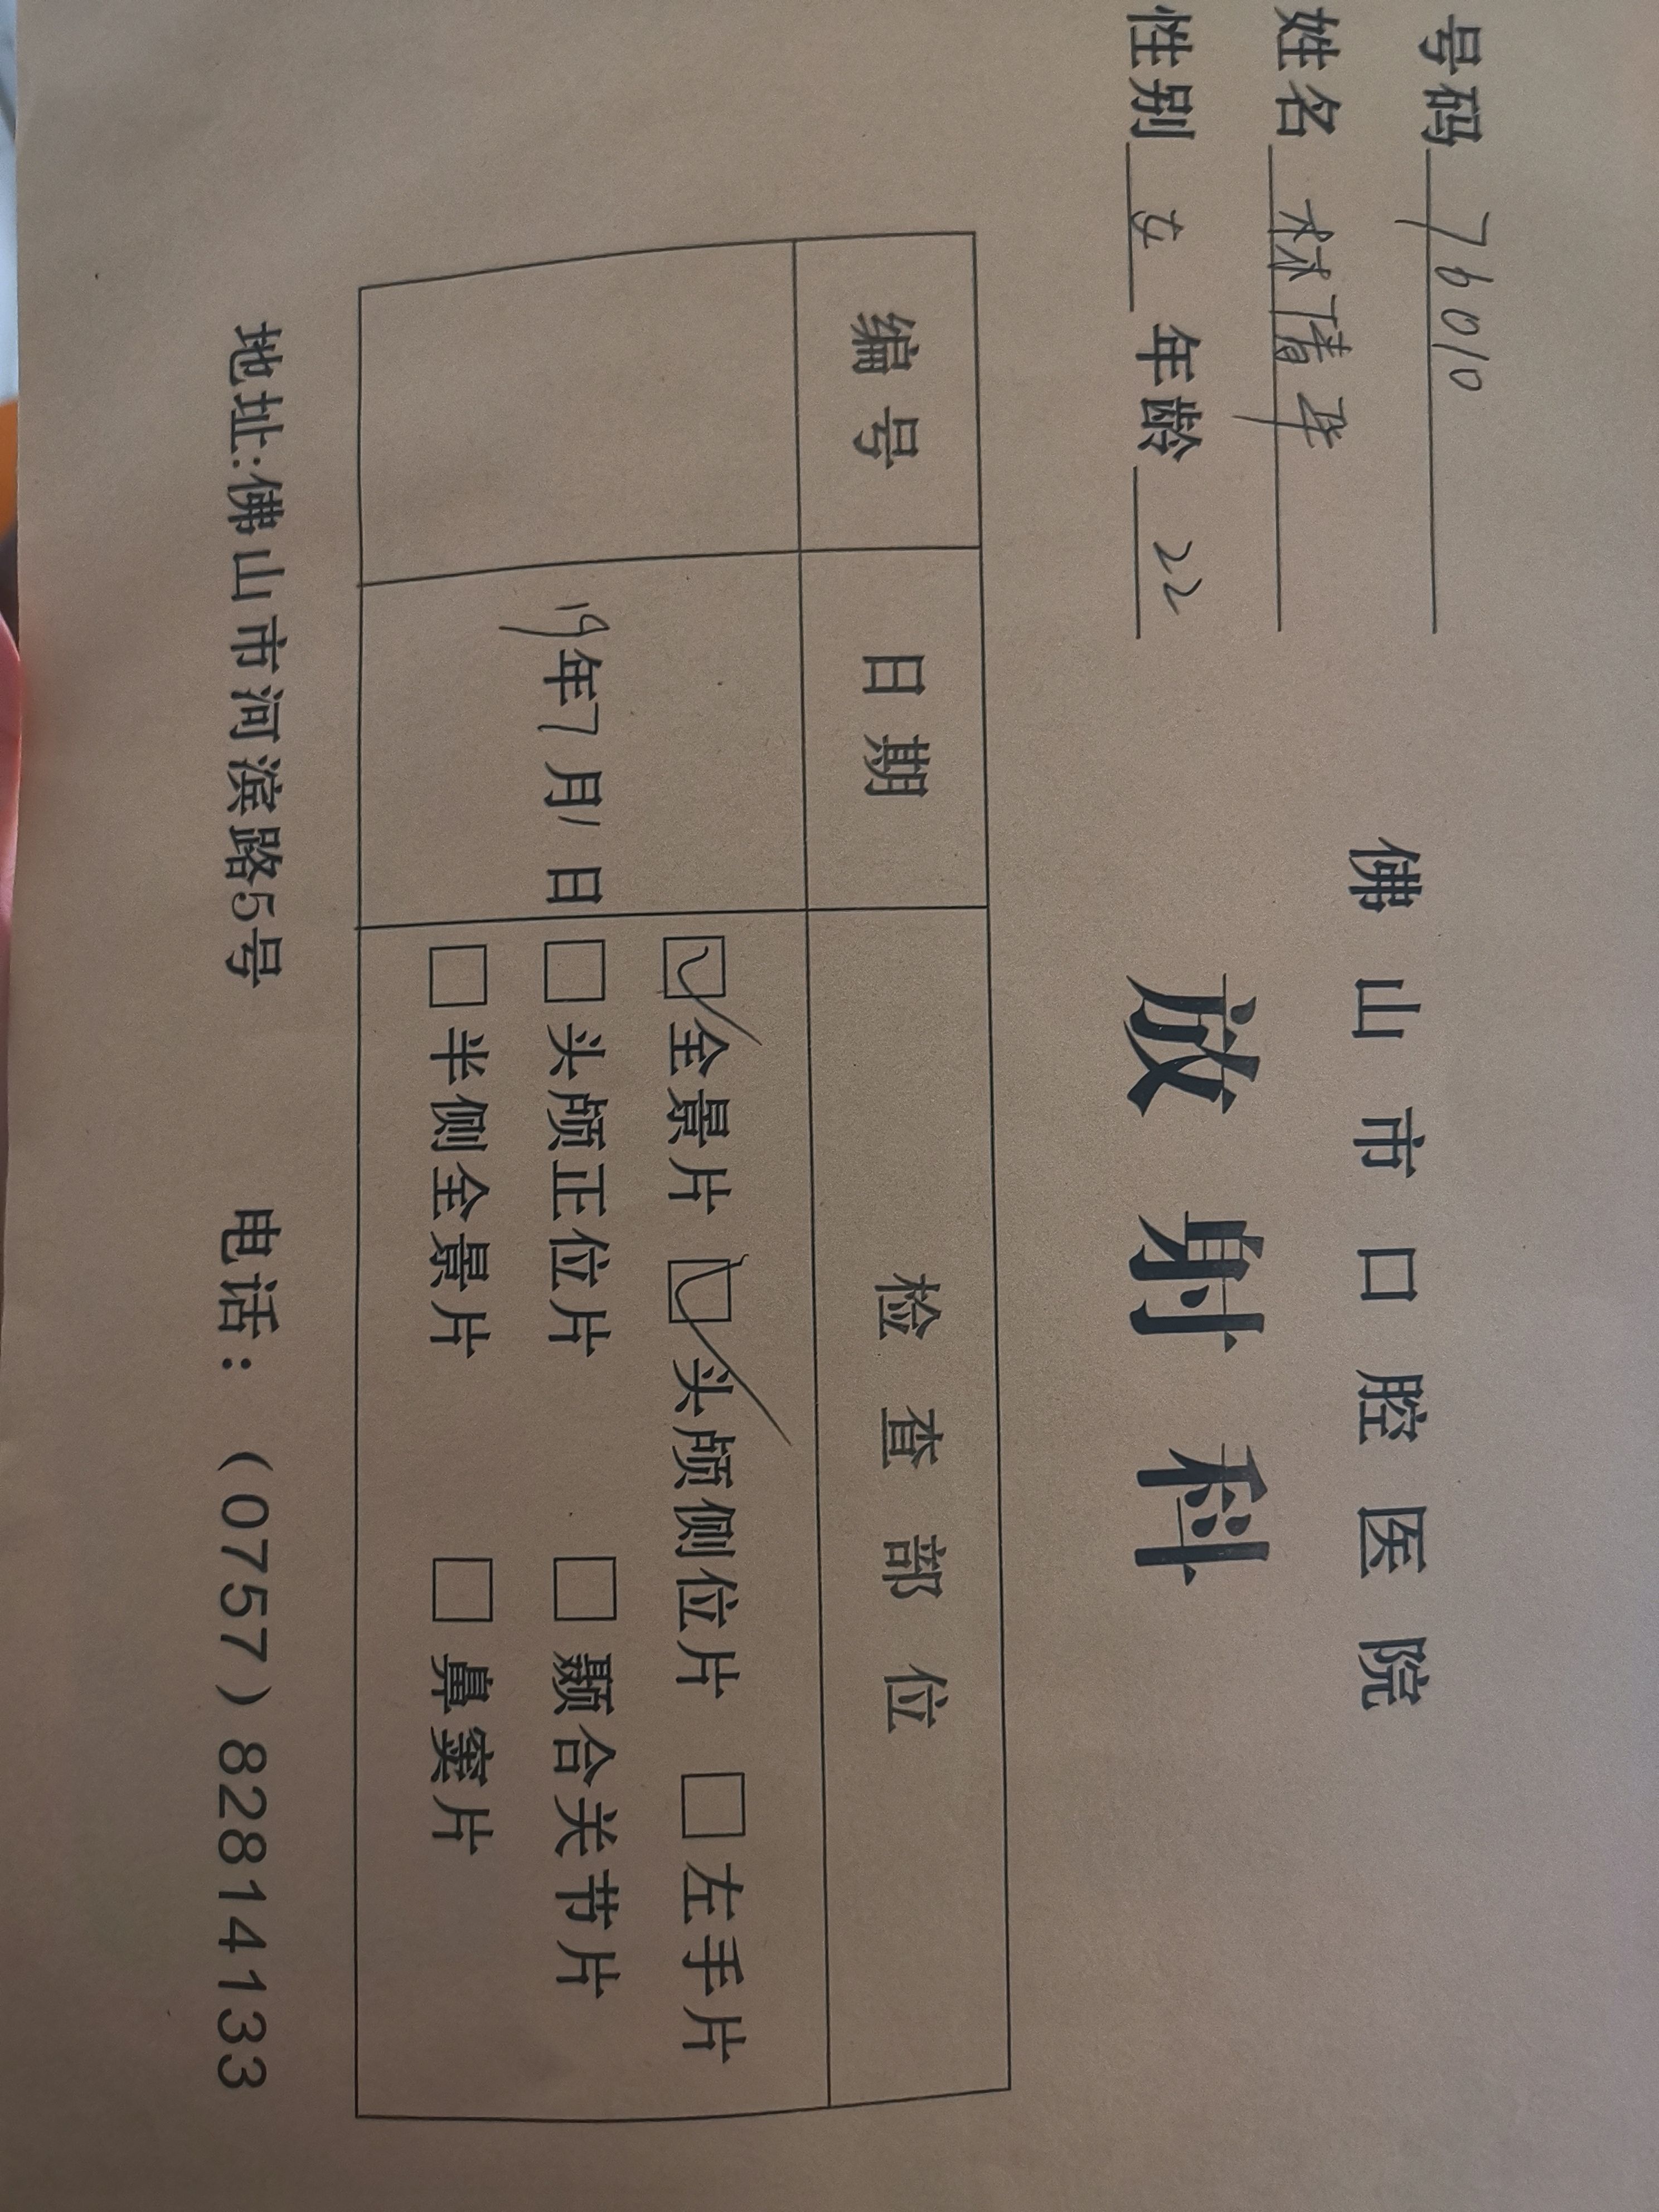 号码 76010
姓名 林清华
性别 女 年龄 22
佛山市口腔医院
放射科
编号 日期 检查部位
19年7月1日
☑全景片 ☑头颅侧位片 □左手片
□头颅正位片 □颞合关节片
□半侧全景片 □鼻窦片
地址:佛山市河滨路5号 电话:(0757)82814133